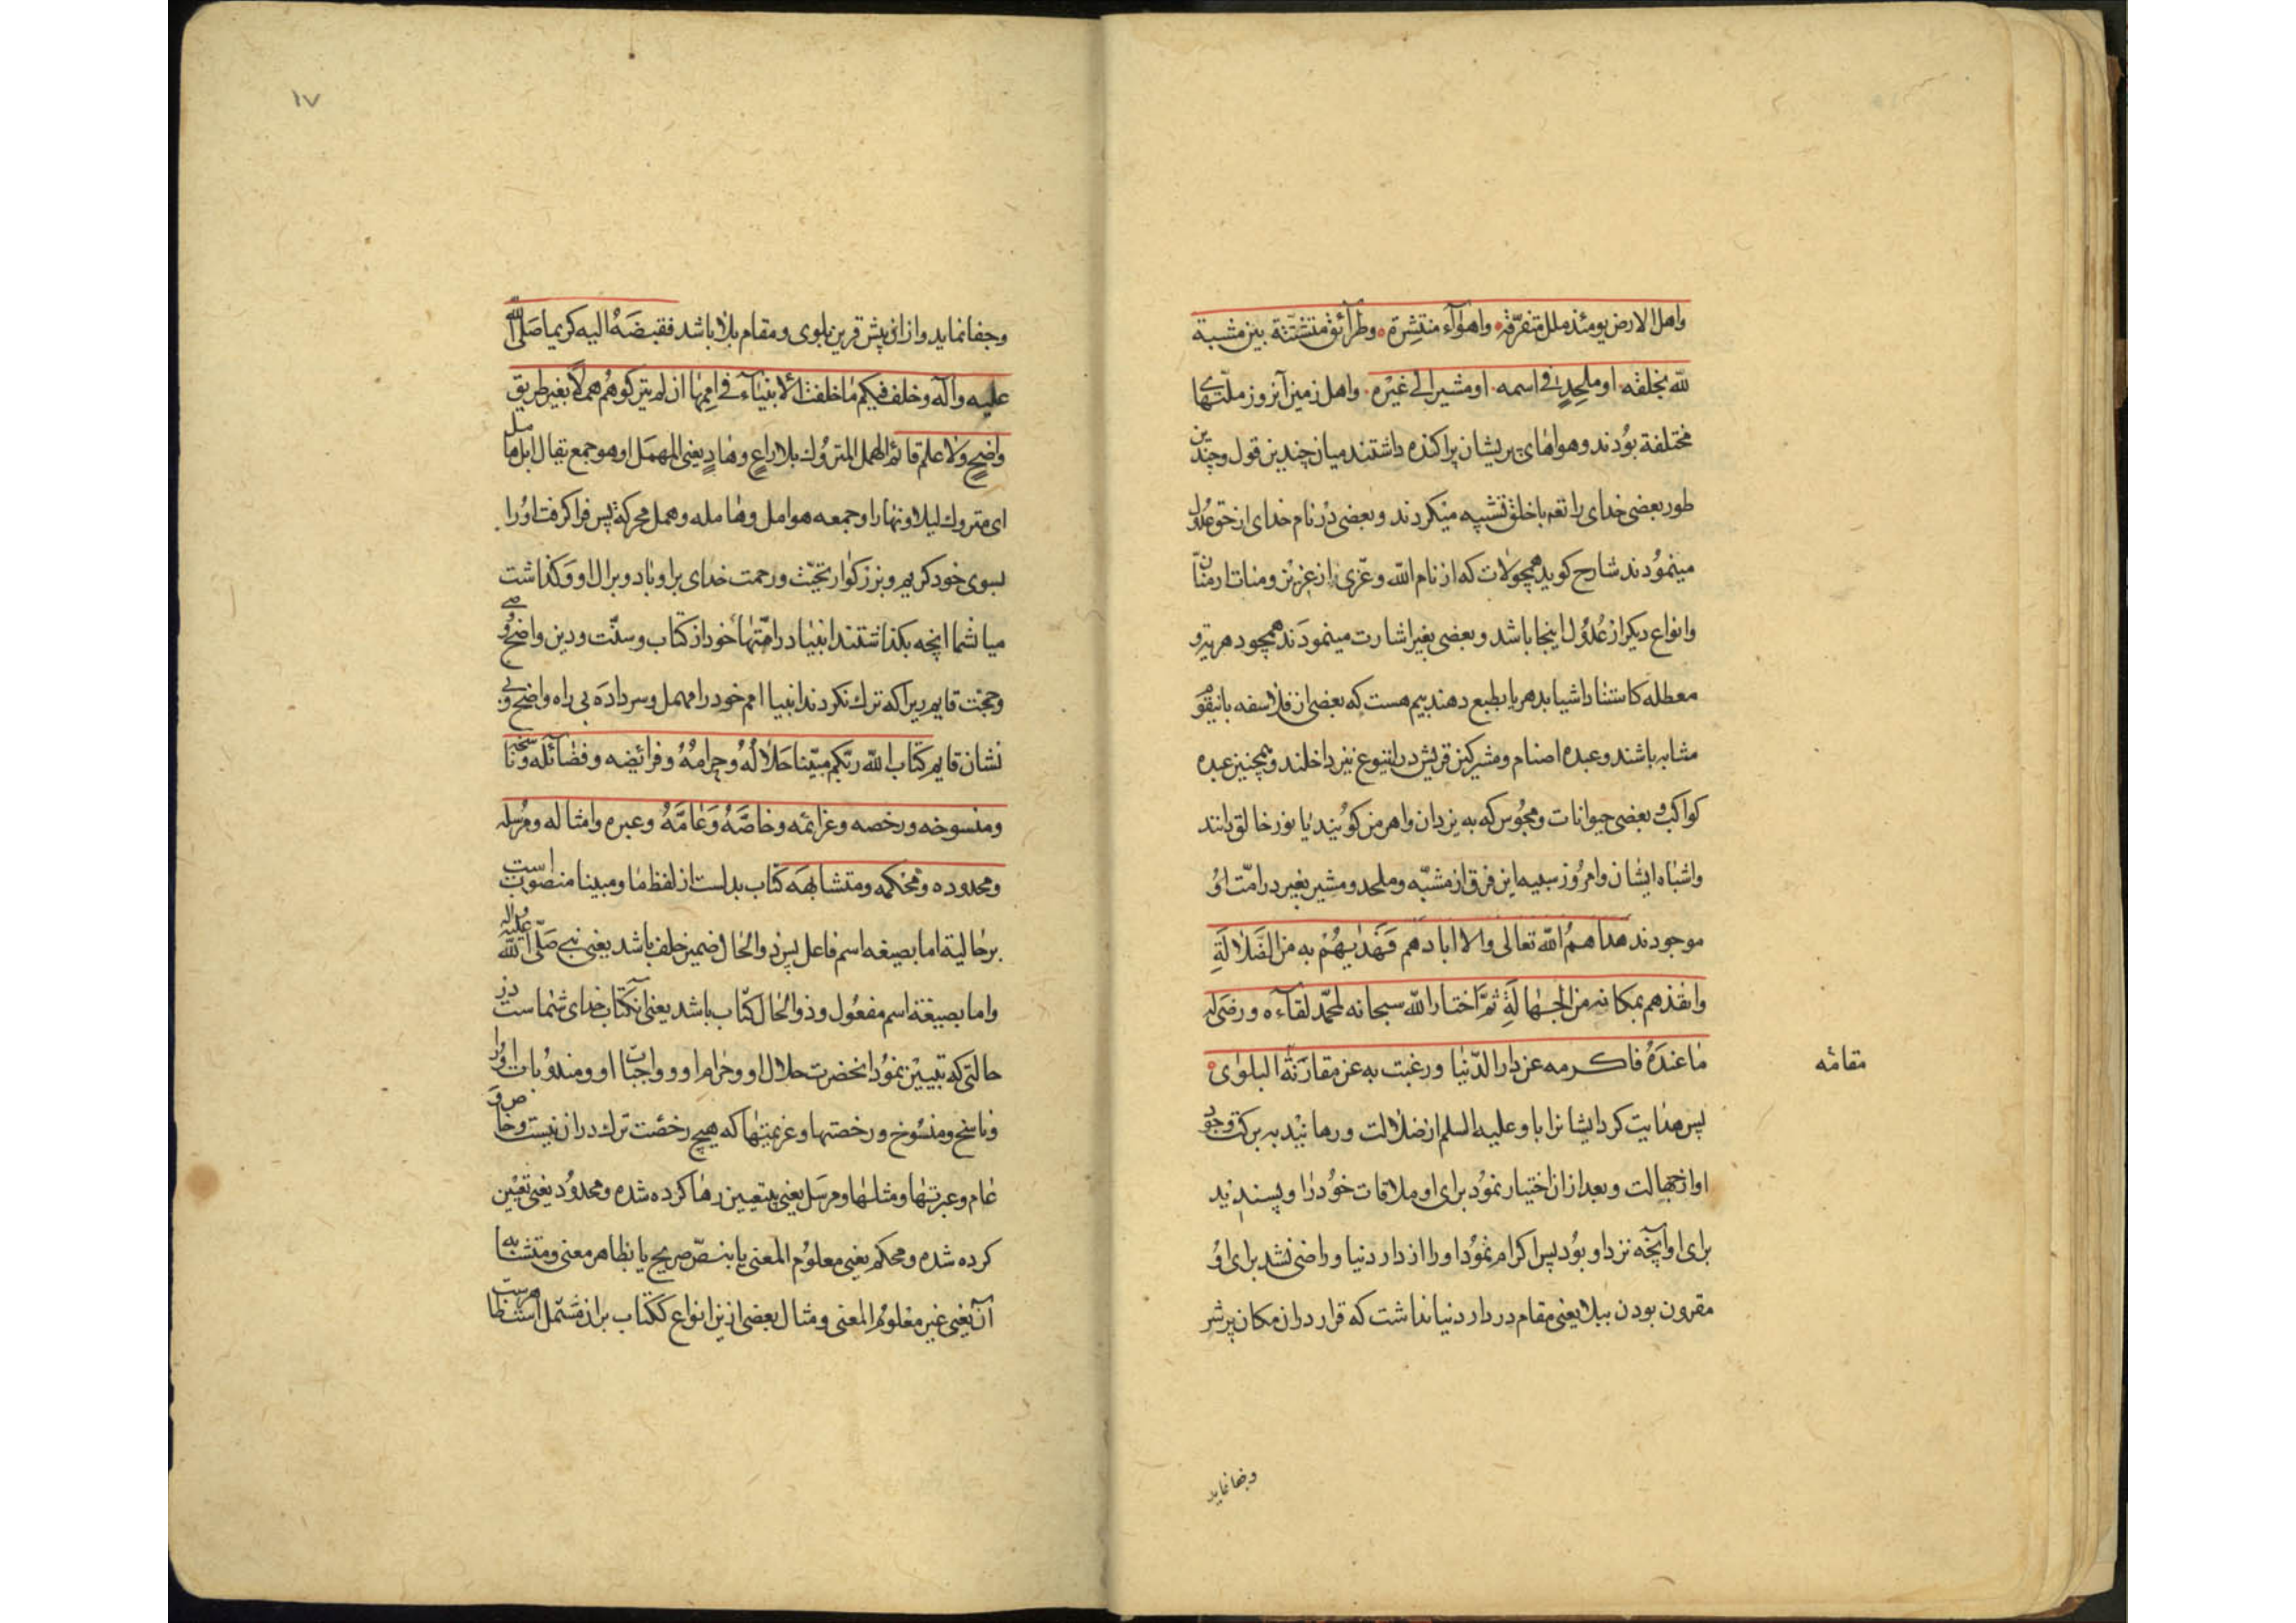 واهل الارض یومئذ ملل متفرّقة واهوآء منتشرة وطرآئق متشتتة بین مشبّة
للّه بخلقه او ملحدٍ فی اسمه او مشیر الی غیره واهل زمین آنروز ملّتهای
مختلفة بودند وهواهای پریشان پراکنده داشتند میان چندین قول وچندین
طور بعضی خدای را تعه باخلق تشبیه میکردند وبعضی در نام خدای از حق عدول
مینمودند شارح کوید همچو لات که از نام اللّه وعزّی از عزیز ومنات از منّان
وانواع دیکر از عدول اینجا باشد وبعضی بغیر اشارت مینمودند همچو دهریه و
معطله که استناد اشیا بدهر یا بطبع دهند بیم هست که بعضی از فلاسفه باینقوم
مشابه باشند وعبده اصنام ومشرکین قریش در اینوع نیز داخلند وهمچنین عبده
کواکب وبعضی حیوانات ومجوس که به یزدان واهرمن کویند یا نور خالق دانند
واشباه ایشان وامروز سبیه این فرق از مشبّه وملحد ومشیر بغیر در امّت او
موجودند هداهم اللّه تعالی والا ابادهم فَهَدٰیهُمْ به من الضَّلالَةِ
وانقذهم بمکانه من الجهالَةِ ثمّ اختار اللّه سبحانه لمحمّد لقآءه ورضی له
ما عنده فاکرمه عن دار الدّنیا ورغبت به عن مقارنة البلوی
مقامه
پس هدایت کرد ایشانرا باو علیه السلم از ضلالت ورهانید به برکت وجود
او از جهالت وبعد از ان اختیار نمود برای او ملاقات خود را وپسندید
برای او آنچه نزد او بود پس اکرام نمود او را از دار دنیا وراضی نشد برای او
مقرون بودن ببلا یعنی مقام در دار دنیا نداشت که قرار دران مکان پر شر
وجفا نماید
١٧
وجفا نماید واز ان پیش قرین بلوی ومقام بلا باشد فقبضه الیه کریما صلّی اللّه
علیه وآله وخلف فیکم ما خلفت الانبیآء فی اممها اذ لم یترکوهم هملا بغیر طریق
واضحٍ ولا علم قائم الهمل المتروک بلا راعٍ وهادٍ یعنی المهمل او هو جمع یقال ابل هامل
ای متروک لیلا ونهارا وجمعه هوامل وهامله وهمل محرکة پس فراکرفت او را
بسوی خود کریم وبزرکوار تحیّت ورحمت خدای براو باد وبر ال او وکذاشت
میا شما انچه بکذاشتند انبیا در امّتها خود از کتاب وسنّت ودین واضح و
وحجّت قایم زیرا که ترک نکردند انبیا امم خود را مهمل وسرداده بی راه واضح وبی
نشان قایم کتاب اللّه ربّکم مبیّنا حلاله وحرامه وفرائضه وفضائله وناسخه
ومنسوخه ورخصه وعزائمه وخاصّه وعامّه وعبره وامثاله ومرسله
ومحدوده ومحکمه ومتشابهه کتاب بدلست از لفظ ما ومبینا منصوب است
برحالیة اما بصیغه اسم فاعل پس ذو الحال ضمیر خلف باشد یعنی نبی صلّی اللّه علیه واله
واما بصیغة اسم مفعول وذو الحال کتاب باشد یعنی آنکتاب خدای شماست در
حالتی که تبیین نمود انحضرت حلال او وحرام او وواجبات او ومندوبات او را
وناسخ ومنسوخ ورخصتها وعزیمتها که هیچ رخصت ترک دران نیست وخاص و
عام وعبرتها ومثلها ومرسل یعنی بیتعیین رها کرده شده ومحدود یعنی تعیین
کرده شده ومحکم یعنی معلوم المعنی یا بنصّ صریح یا بظاهر معنی ومتشابه
آن یعنی غیر معلوم المعنی ومثال بعضی ازین انواع که کتاب بران مشتمل است